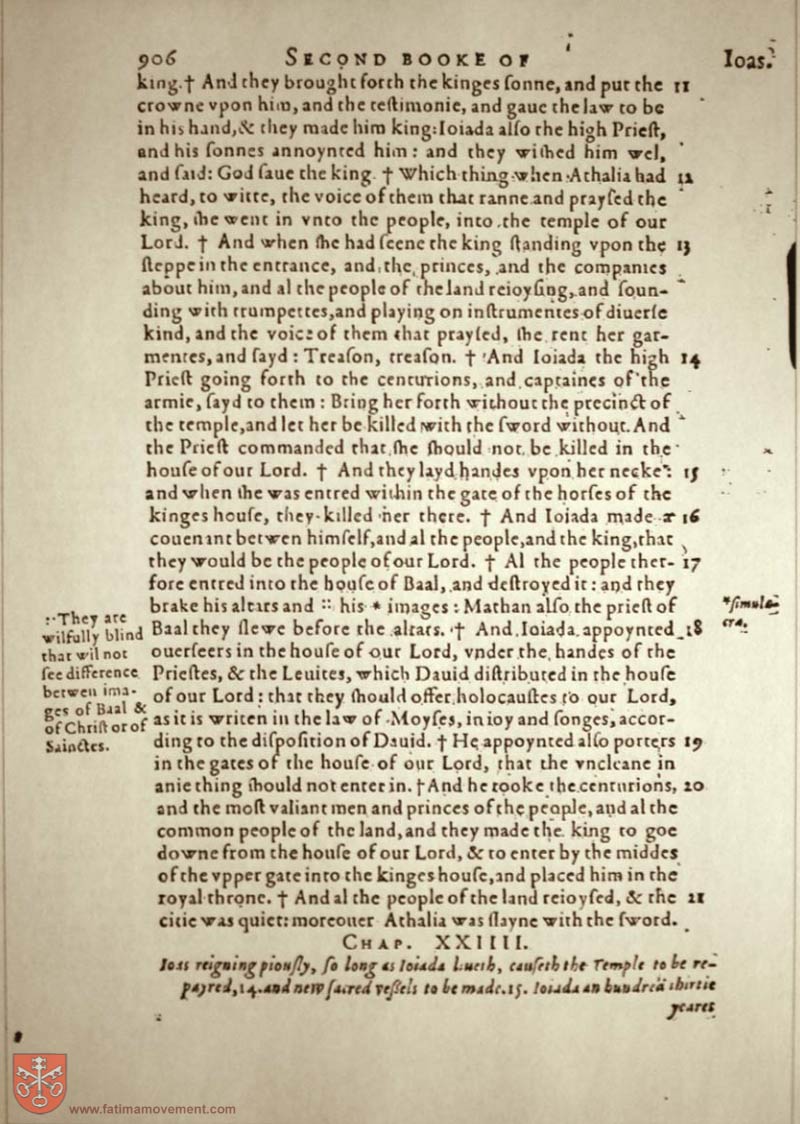 906 SECOND BOOKE OF Ioas.
king.† And they brought forth the kinges ſonne, and put the 11
crowne vpon him, and the teſtimonie, and gaue the law to be
in his hand, & they made him king: Ioiada alſo the high Prieſt,
and his ſonnes annoynted him: and they wiſhed him wel,
and ſaid: God ſaue the king. † Which thing when Athalia had 12
heard, to witte, the voice of them that ranne and prayſed the
king, ſhe went in vnto the people, into the temple of our
Lord. † And when ſhe had ſeene the king ſtanding vpon the 13
ſteppe in the entrance, and the princes, and the companies
about him, and al the people of the land reioyſing, and ſoun-
ding with trumpettes, and playing on inſtrumentes of diuerſe
kind, and the voice of them that prayſed, ſhe rent her gar-
mentes, and ſayd: Treaſon, treaſon. † And Ioiada the high 14
Prieſt going forth to the centurions, and captaines of the
armie, ſayd to them: Bring her forth without the precinct of
the temple, and let her be killed with the ſword without. And
the Prieſt commanded that ſhe ſhould not be killed in the
houſe of our Lord. † And they layd handes vpon her necke: 15
and when ſhe was entred within the gate of the horſes of the
kinges houſe, they killed her there. † And Ioiada made a 16
couenant betwen himſelf, and al the people, and the king, that
they would be the people of our Lord. † Al the people ther- 17
fore entred into the houſe of Baal, and deſtroyed it: and they
brake his altars and :: his * images: Mathan alſo the prieſt of
Baal they ſlewe before the altars. † And Ioiada appoynted 18
ouerſeers in the houſe of our Lord, vnder the handes of the
Prieſtes, & the Leuites, which Dauid diſtributed in the houſe
of our Lord: that they ſhould offer holocauſtes to our Lord,
as it is writen in the law of Moyſes, in ioy and ſonges, accor-
ding to the diſpoſition of Dauid. † He appoynted alſo porters 19
in the gates of the houſe of our Lord, that the vncleane in
anie thing ſhould not enter in. † And he tooke the centurions, 20
and the moſt valiant men and princes of the people, and al the
common people of the land, and they made the king to goe
downe from the houſe of our Lord, & to enter by the middes
of the vpper gate into the kinges houſe, and placed him in the
royal throne. † And al the people of the land reioyſed, & the 21
citie was quiet: moreouer Athalia was ſlayne with the ſword.
:: They are
wilfully blind
that wil not
ſee difference
betwen ima-
ges of Baal &
of Chriſt or of
Sainctes.
*ſimula-
cra.
CHAP. XXIIII.
Ioas reigning piouſly, ſo long as Ioiada liueth, cauſeth the Temple to be re-
payred, 14. and new ſacred veſſels to be made. 15. Ioiada an hundred thirtie
yeares
www.fatimamovement.com